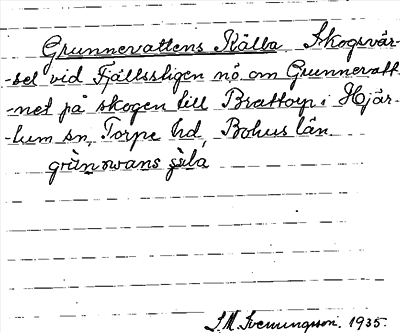 Grunnevattens Källa, Skogsvär-
-sel vid Fjällsstigen nö om Grunnevatt-
-net på skogen till Brattorp i Hjär-
-tum sn, Torpe hd, Bohus län
grùnǝwans çèla
S.M. Svenungsson. 1935.